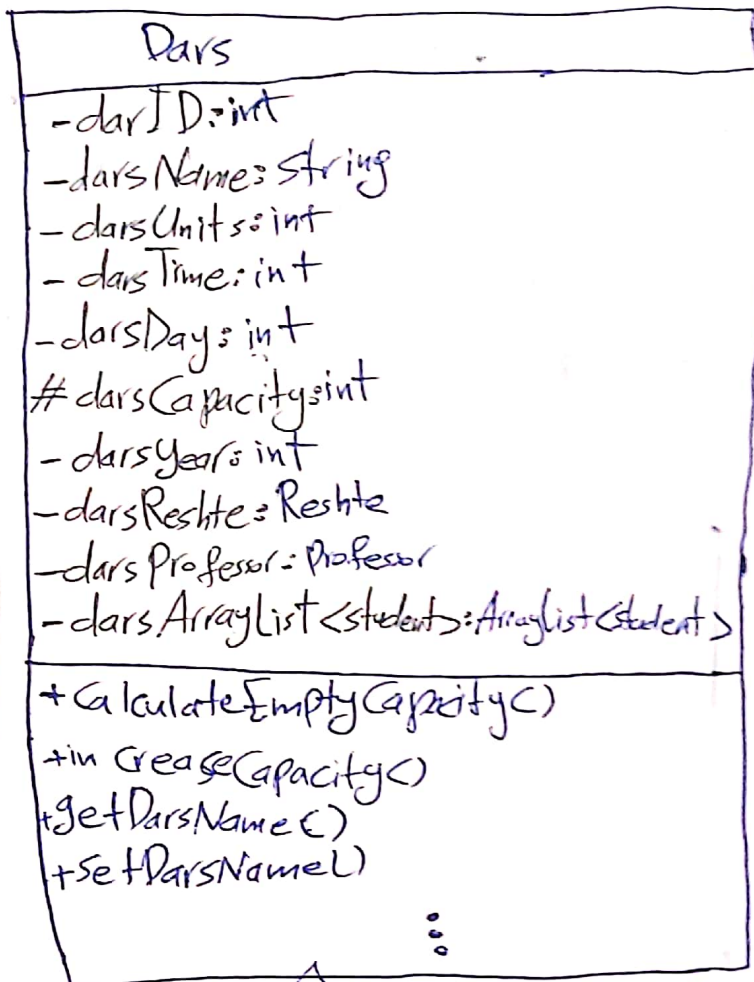 Dars
-darID:int
-darsName:String
-darsUnits:int
-darsTime:int
-darsDay:int
#darsCapacity:int
-darsYear:int
-darsReshte:Reshte
-darsProfessor:Professor
-darsArrayList<student>:ArrayList<student>
+CalculateEmptyCapacity()
+inCreaseCapacity()
+getDarsName()
+SetDarsName()